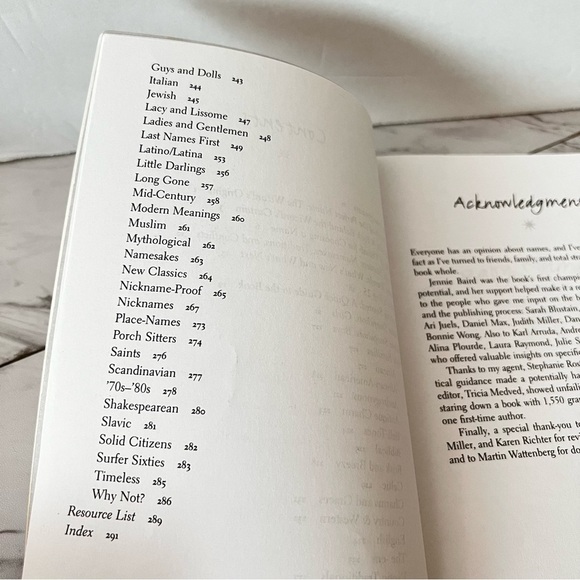 Guys and Dolls 243
Italian 244
Jewish 245
Lacy and Lissome 247
Ladies and Gentlemen 248
Last Names First 249
Latino/Latina 253
Little Darlings 256
Long Gone 257
Mid-Century 258
Modern Meanings 260
Muslim 261
Mythological 262
Namesakes 263
New Classics 264
Nickname-Proof 265
Nicknames 267
Place-Names 273
Porch Sitters 274
Saints 276
Scandinavian 277
'70s–'80s 278
Shakespearean 280
Slavic 281
Solid Citizens 282
Surfer Sixties 283
Timeless 285
Why Not? 286
Resource List 289
Index 291
Acknowledgmen
Everyone has an opinion about names, and I've
fact as I've turned to friends, family, and total
book whole.
Jennie Baird was the book's first champ
potential, and her support helped make it a
to the people who gave me input on the
and the publishing process: Sarah Blustain,
Ari Juels, Daniel Max, Judith Miller,
Bonnie Wong. Also to Karl Arruda,
Alina Plourde, Laura Raymond, Julie S
who offered valuable insights on specific
Thanks to my agent, Stephanie
tical guidance made a potentially
editor, Tricia Medved, showed
staring down a book with 1,550
one first-time author.
Finally, a special thank-you
Miller, and Karen Richter for
and to Martin Wattenberg for